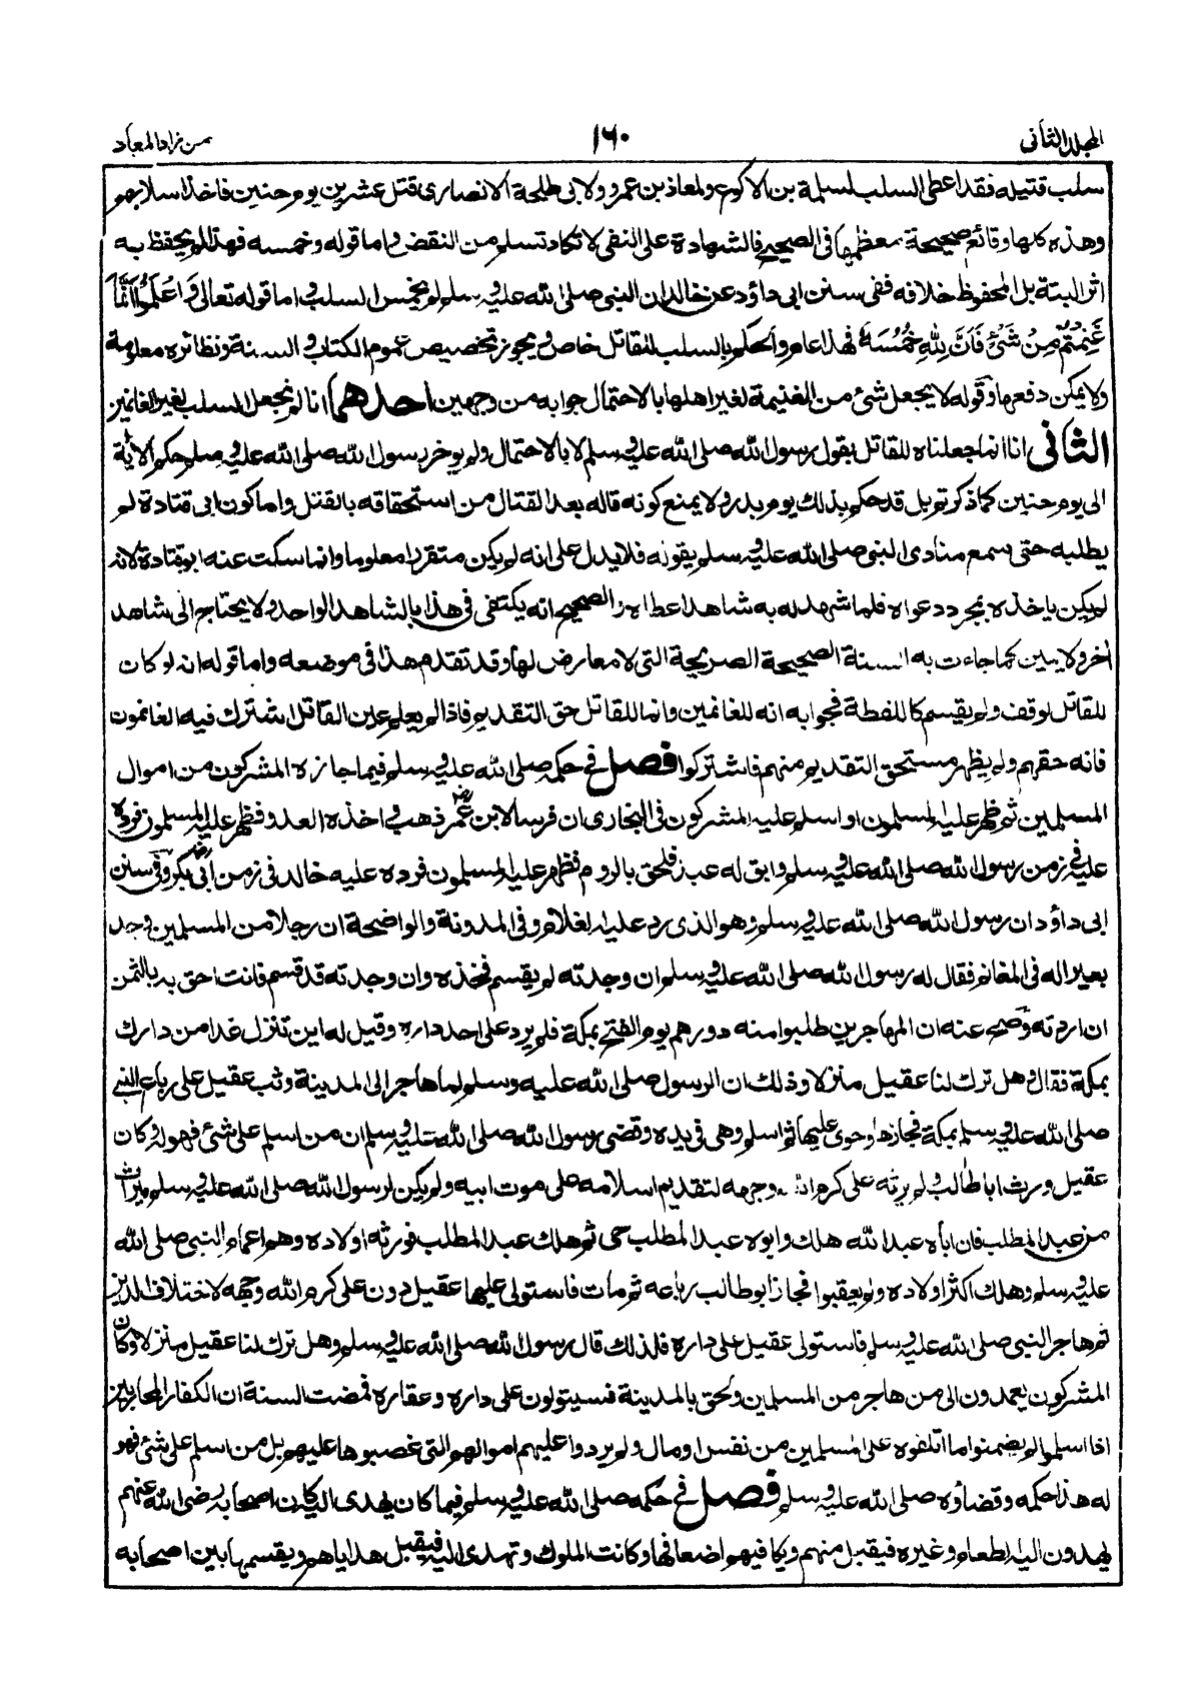 المجلد الثانى
١٦٠
من زاد المعاد
سلب قتيله فقد اعطى السلب لسلمة بن الاكوع ولمعاذ بن عمرو ولابى طلحة الانصارى قتل عشرين يوم حنين فاخذ اسلابهم
وهذه كلها وقائع صحيحة معظمها فى الصحيح فالشهادة على النفى لا تكاد تسلم من النقض واما قوله وخمسه فهذا لم يحفظ به
اثر البتة بل المحفوظ خلافه ففى سنن ابى داؤد عن خالد ان النبى صلى الله عليه وسلم لم يخمس السلب واما قوله تعالى وَاعْلَمُوْا اَنَّمَا
غَنِمْتُمْ مِنْ شَىْءٍ فَاَنَّ لِلّٰهِ خُمُسَهٗ فهذا عام والحكم بالسلب للقاتل خاص ويجوز تخصيص عموم الكتاب والسنة ونظائره معلومة
ولا يمكن دفعها وقوله لا يجعل شئ من الغنيمة لغير اهلها بالاحتمال جوابه من وجهين احدهما انا لم نجعل السلب لغير الغانمين
الثانى انا انما جعلناه للقاتل بقول رسول الله صلى الله عليه وسلم لا بالاحتمال ولم يوخر رسول الله صلى الله عليه وسلم حكم الأية
الى يوم حنين كما ذكرتم بل قد حكم بذلك يوم بدر ولا يمنع كونه قاله بعد القتال من استحقاقه بالقتل واما كون ابى قتادة لم
يطلبه حتى سمع منادى النبى صلى الله عليه وسلم يقوله فلا يدل على انه لم يكن متقررا معلوما وانما سكت عنه ابو قتادة لانه
لم يكن ياخذه بمجرد دعواه فلما شهد له به شاهد اعطاه والصحيح انه يكتفى فى هذا بالشاهد الواحد ولا يحتاج الى شاهد
اخر ولا يمين كما جاءت به السنة الصحيحة الصريحة التى لا معارض لها وقد تقدم هذا فى موضعه واما قوله انه لو كان
للقاتل لوقف ولم يقسم كاللقطة فجوابه انه للغانمين وانما للقاتل حق التقديم فاذا لم يعلم عين القاتل اشترك فيه الغانمون
فانه حقهم ولم يظهر مستحق التقديم منهم فاشتركوا فصل فى حكمه صلى الله عليه وسلم فيما حازه المشركون من اموال
المسلمين ثم ظهر عليه المسلمون او اسلم عليه المشركون فى البخارى ان فرسا لابن عمر رض ذهب واخذه العدو فظهر عليه المسلمون فرده
عليه فى زمن رسول الله صلى الله عليه وسلم وابق له عبد فلحق بالروم فظهر عليه المسلمون فرده عليه خالد فى زمن ابى بكر رض وفى سنن
ابى داؤد ان رسول الله صلى الله عليه وسلم وهو الذى رد عليه الغلام وفى المدونة والواضحة ان رجلا من المسلمين وجد
بعيرا له فى المغانم فقال له رسول الله صلى الله عليه وسلم ان وجدته لم يقسم فخذه وان وجدته قد قسم فانت احق به بالثمن
ان اردته وصح عنه ان المهاجرين طلبوا منه دورهم يوم الفتح بمكة فلم يرد على احد داره وقيل له اين تنزل غدا من دارك
بمكة فقال وهل ترك لنا عقيل منزلا وذلك ان الرسول صلى الله عليه وسلم لما هاجر الى المدينة وثب عقيل على رباع النبى
صلى الله عليه وسلم بمكة فحازها وحوى عليها ثم اسلم وهى فى يده وقضى رسول الله صلى الله عليه وسلم ان من اسلم على شئ فهو له وكان
عقيل ورث ابا طالب ولم يرثه على كرم الله وجهه لتقديم اسلامه على موت ابيه ولم يكن لرسول الله صلى الله عليه وسلم ميراث
من عبد المطلب فان اباه عبد الله هلك وابوه عبد المطلب حى ثم هلك عبد المطلب فورثه اولاده وهم اعمام النبى صلى الله
عليه وسلم وهلك اكثر اولاده ولم يعقبوا فحاز ابو طالب رباعه ثم مات فاستولى عليها عقيل دون على كرم الله وجهه لاختلاف الدين
ثم هاجر النبى صلى الله عليه وسلم فاستولى عقيل على داره فلذلك قال رسول الله صلى الله عليه وسلم وهل ترك لنا عقيل منزلا وكان
المشركون يعمدون الى من هاجر من المسلمين ولحق بالمدينة فسيتولون على داره وعقاره فمضت السنة ان الكفار المحاربين
اذا اسلموا لم يضمنوا ما اتلفوه على المسلمين من نفس او مال ولم يردوا عليهم اموالهم التى غصبوها عليهم بل من اسلم على شئ فهو
له هذا حكمه وقضاؤه صلى الله عليه وسلم فصل فى حكمه صلى الله عليه وسلم فيما كان يهدى اليه كان اصحابه رضى الله عنهم
يهدون اليه الطعام وغيره فيقبل منهم ويكافيهم اضعافها وكانت الملوك وتهدى اليه فيقبل هداياهم ويقسمها بين اصحابه